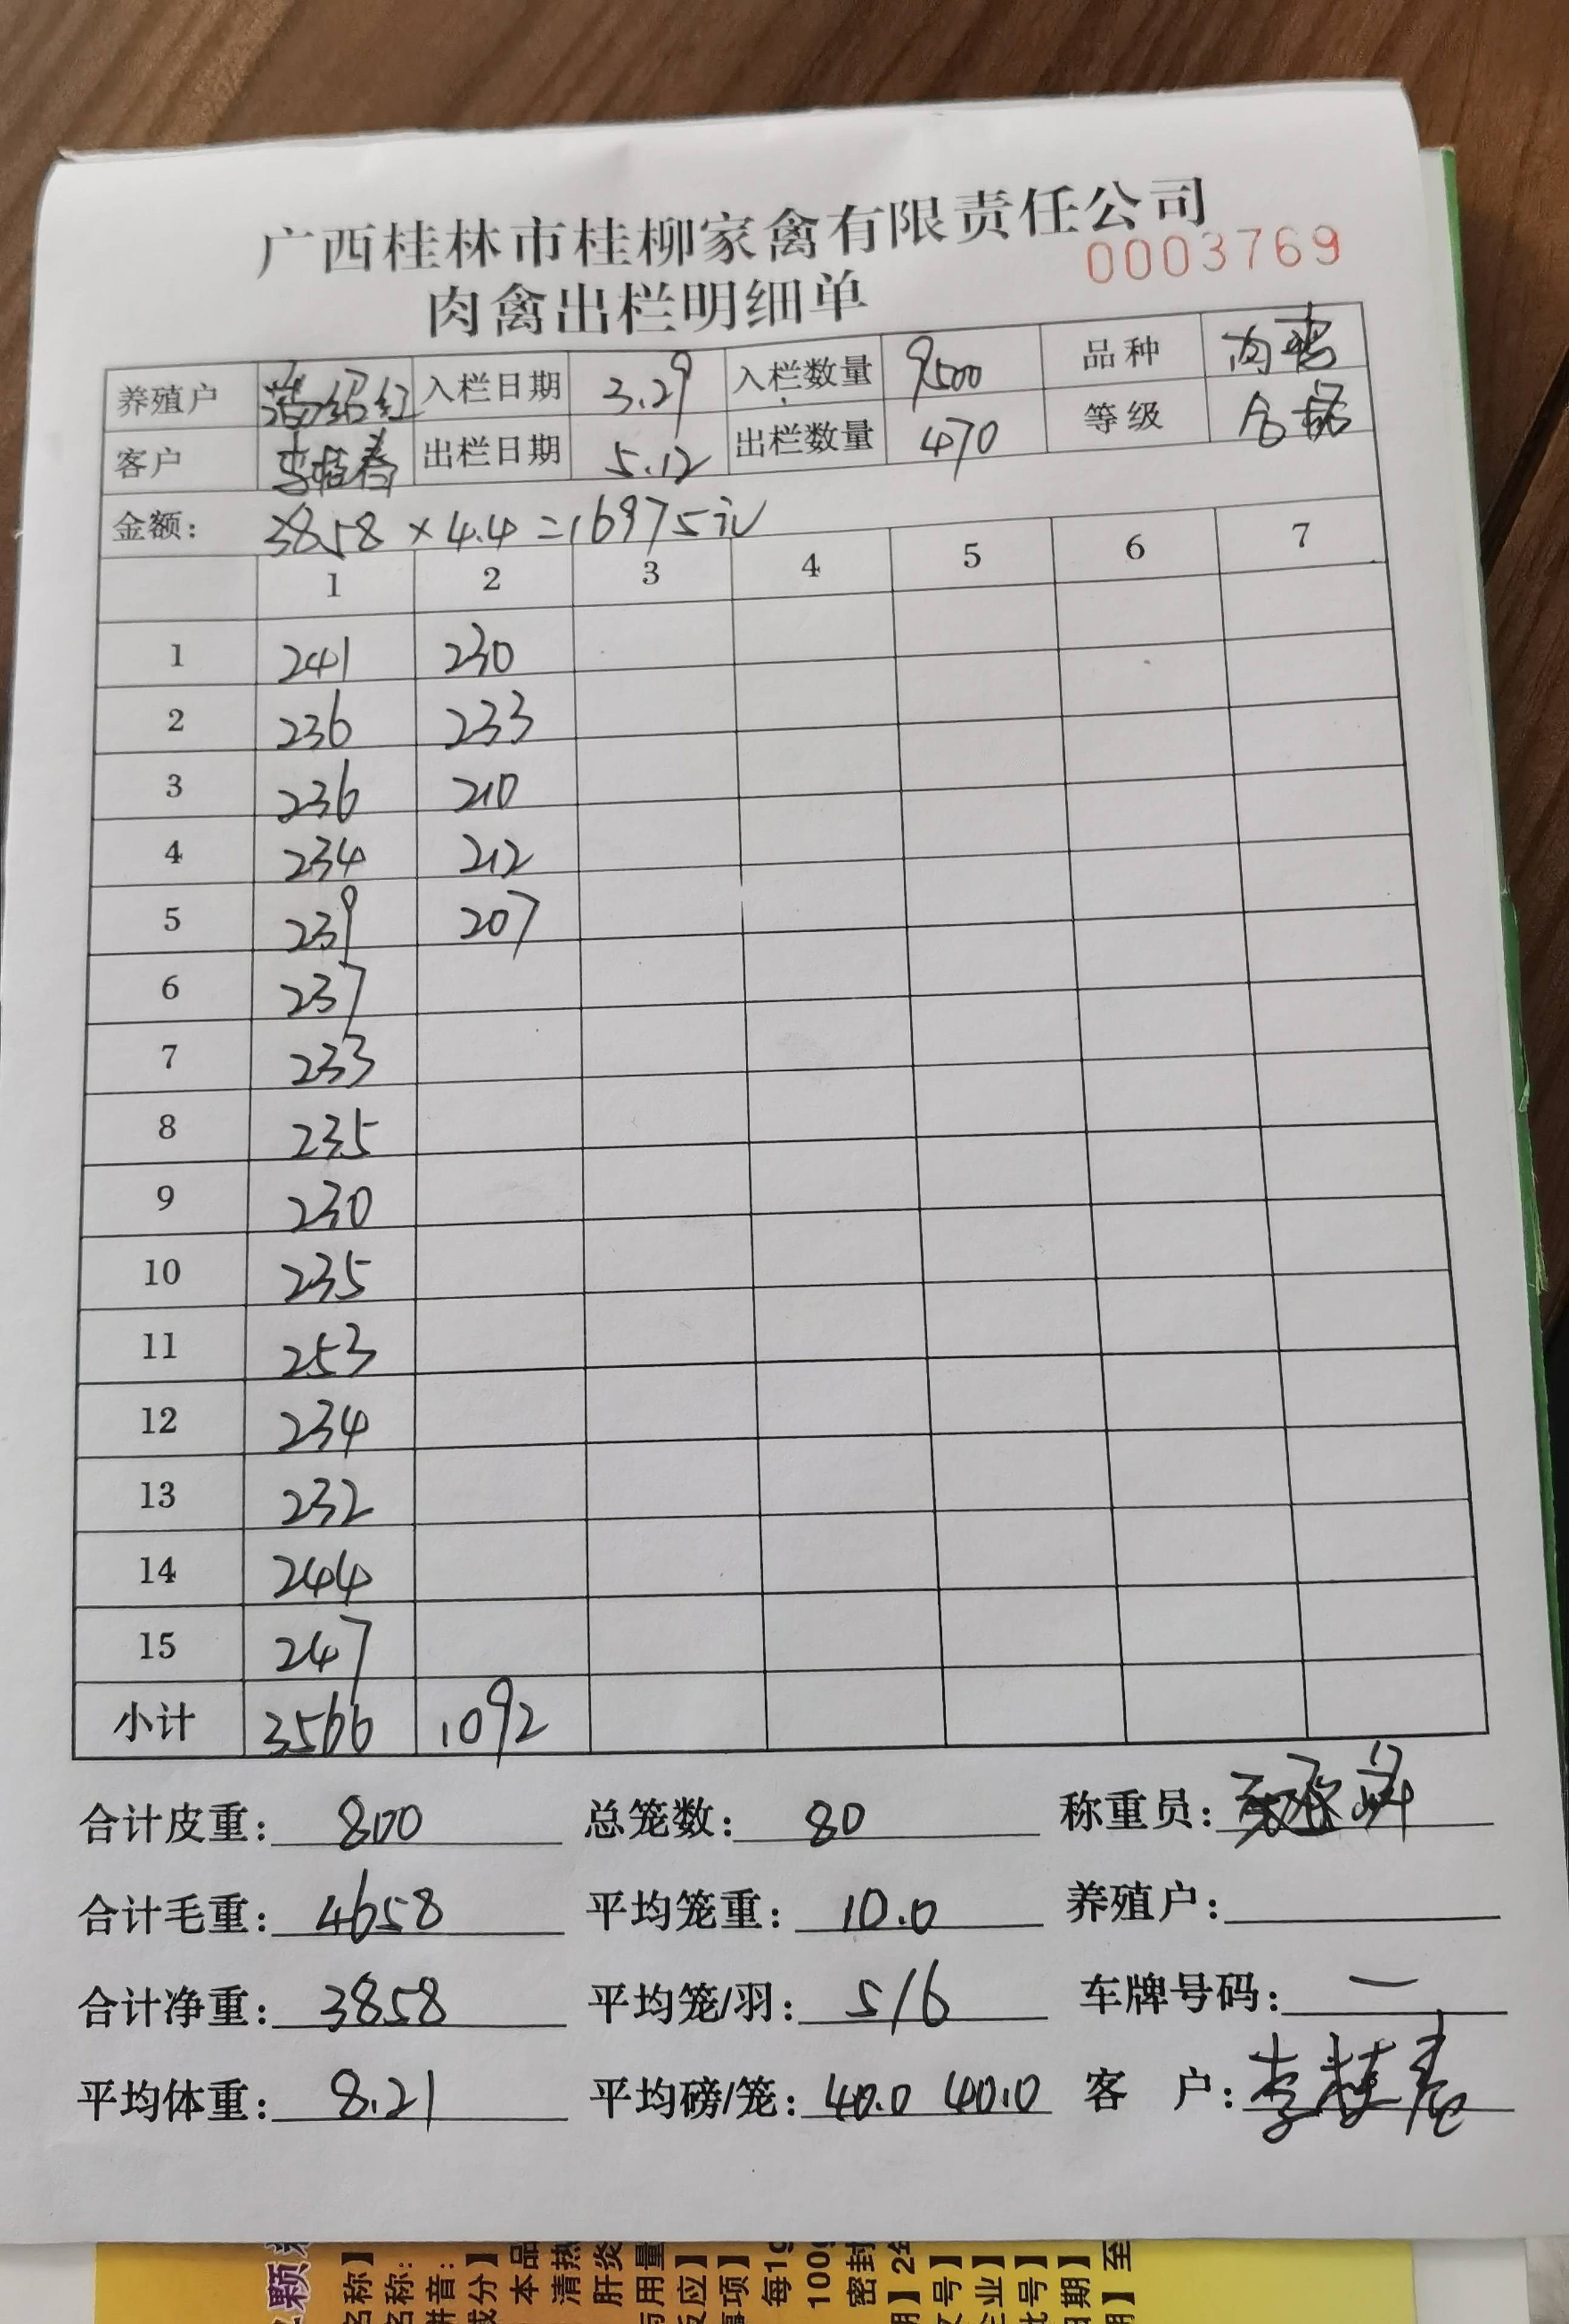 广西桂林市桂柳家禽有限责任公司
0003769
肉禽出栏明细单
养殖户 蒋绍红 入栏日期 3.29 入栏数量 9500 品种 肉鸭
客户 李桂春 出栏日期 5.12 出栏数量 470 等级 合格
金额: 3858 × 4.4 = 16975元
1 2 3 4 5 6 7
1 241 230
2 236 233
3 236 210
4 234 212
5 239 207
6 237
7 233
8 235
9 230
10 235
11 253
12 234
13 232
14 244
15 247
小计 3566 1092
合计皮重: 800 总笼数: 80 称重员:
合计毛重: 4658 平均笼重: 10.0 养殖户:
合计净重: 3858 平均笼/羽: 5/6 车牌号码: 一
平均体重: 8.21 平均磅/笼: 40.0 40.0 客 户: 李桂春
颗
名称】
名称:
拼音:
成分】
本品
清热
肝炎
与用量
反应】
事项】
每1g
100g
密封
期】2年
文号】
企业】
批号】
日期】
】至